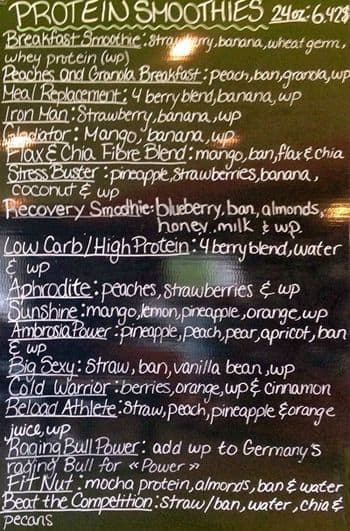 PROTEIN SMOOTHIES 24oz: 6.42$
Breakfast Smoothie: strawberry, banana, wheat germ,
whey protein (wp)
Peaches and Granola Breakfast: peach, ban, granola, wp
Meal Replacement: 4 berry blend, banana, wp
Iron Man: Strawberry, banana, wp
Gladiator: Mango, banana, wp
Flax & Chia Fibre Blend: mango, ban, flax & chia
Stress Buster: pineapple, strawberries, banana,
coconut & wp
Recovery Smoothie: blueberry, ban, almonds,
honey, milk & wp
Low Carb/High Protein: 4 berry blend, water
& wp
Aphrodite: peaches, strawberries & wp
Sunshine: mango, lemon, pineapple, orange, wp
Ambrosia Power: pineapple, peach, pear, apricot, ban
& wp
Big Sexy: Straw, ban, vanilla bean, wp
Cold Warrior: berries, orange, wp & cinnamon
Reload Athlete: Straw, peach, pineapple & orange
juice, wp
Raging Bull Power: add wp to Germany's
raging Bull for «Power»
Fit Nut: mocha protein, almonds, ban & water
Beat the Competition: straw/ban, water, chia &
pecans